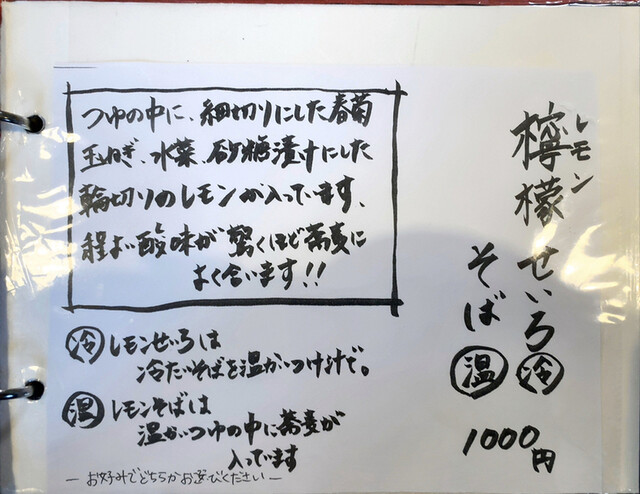 檸檬せいろ㊀冷
レモン
そば㊀温
1000円
つゆの中に、細切りにした春菊
玉ねぎ、水菜、砂糖漬けにした
輪切りのレモンが入っています、
程よい酸味が驚くほど蕎麦に
よく合います!!
冷 レモンせいろは
冷たいそばを温かいつけ汁で。
温 レモンそばは
温かいつゆの中に蕎麦が
入っています
—お好みでどちらかお選びください—